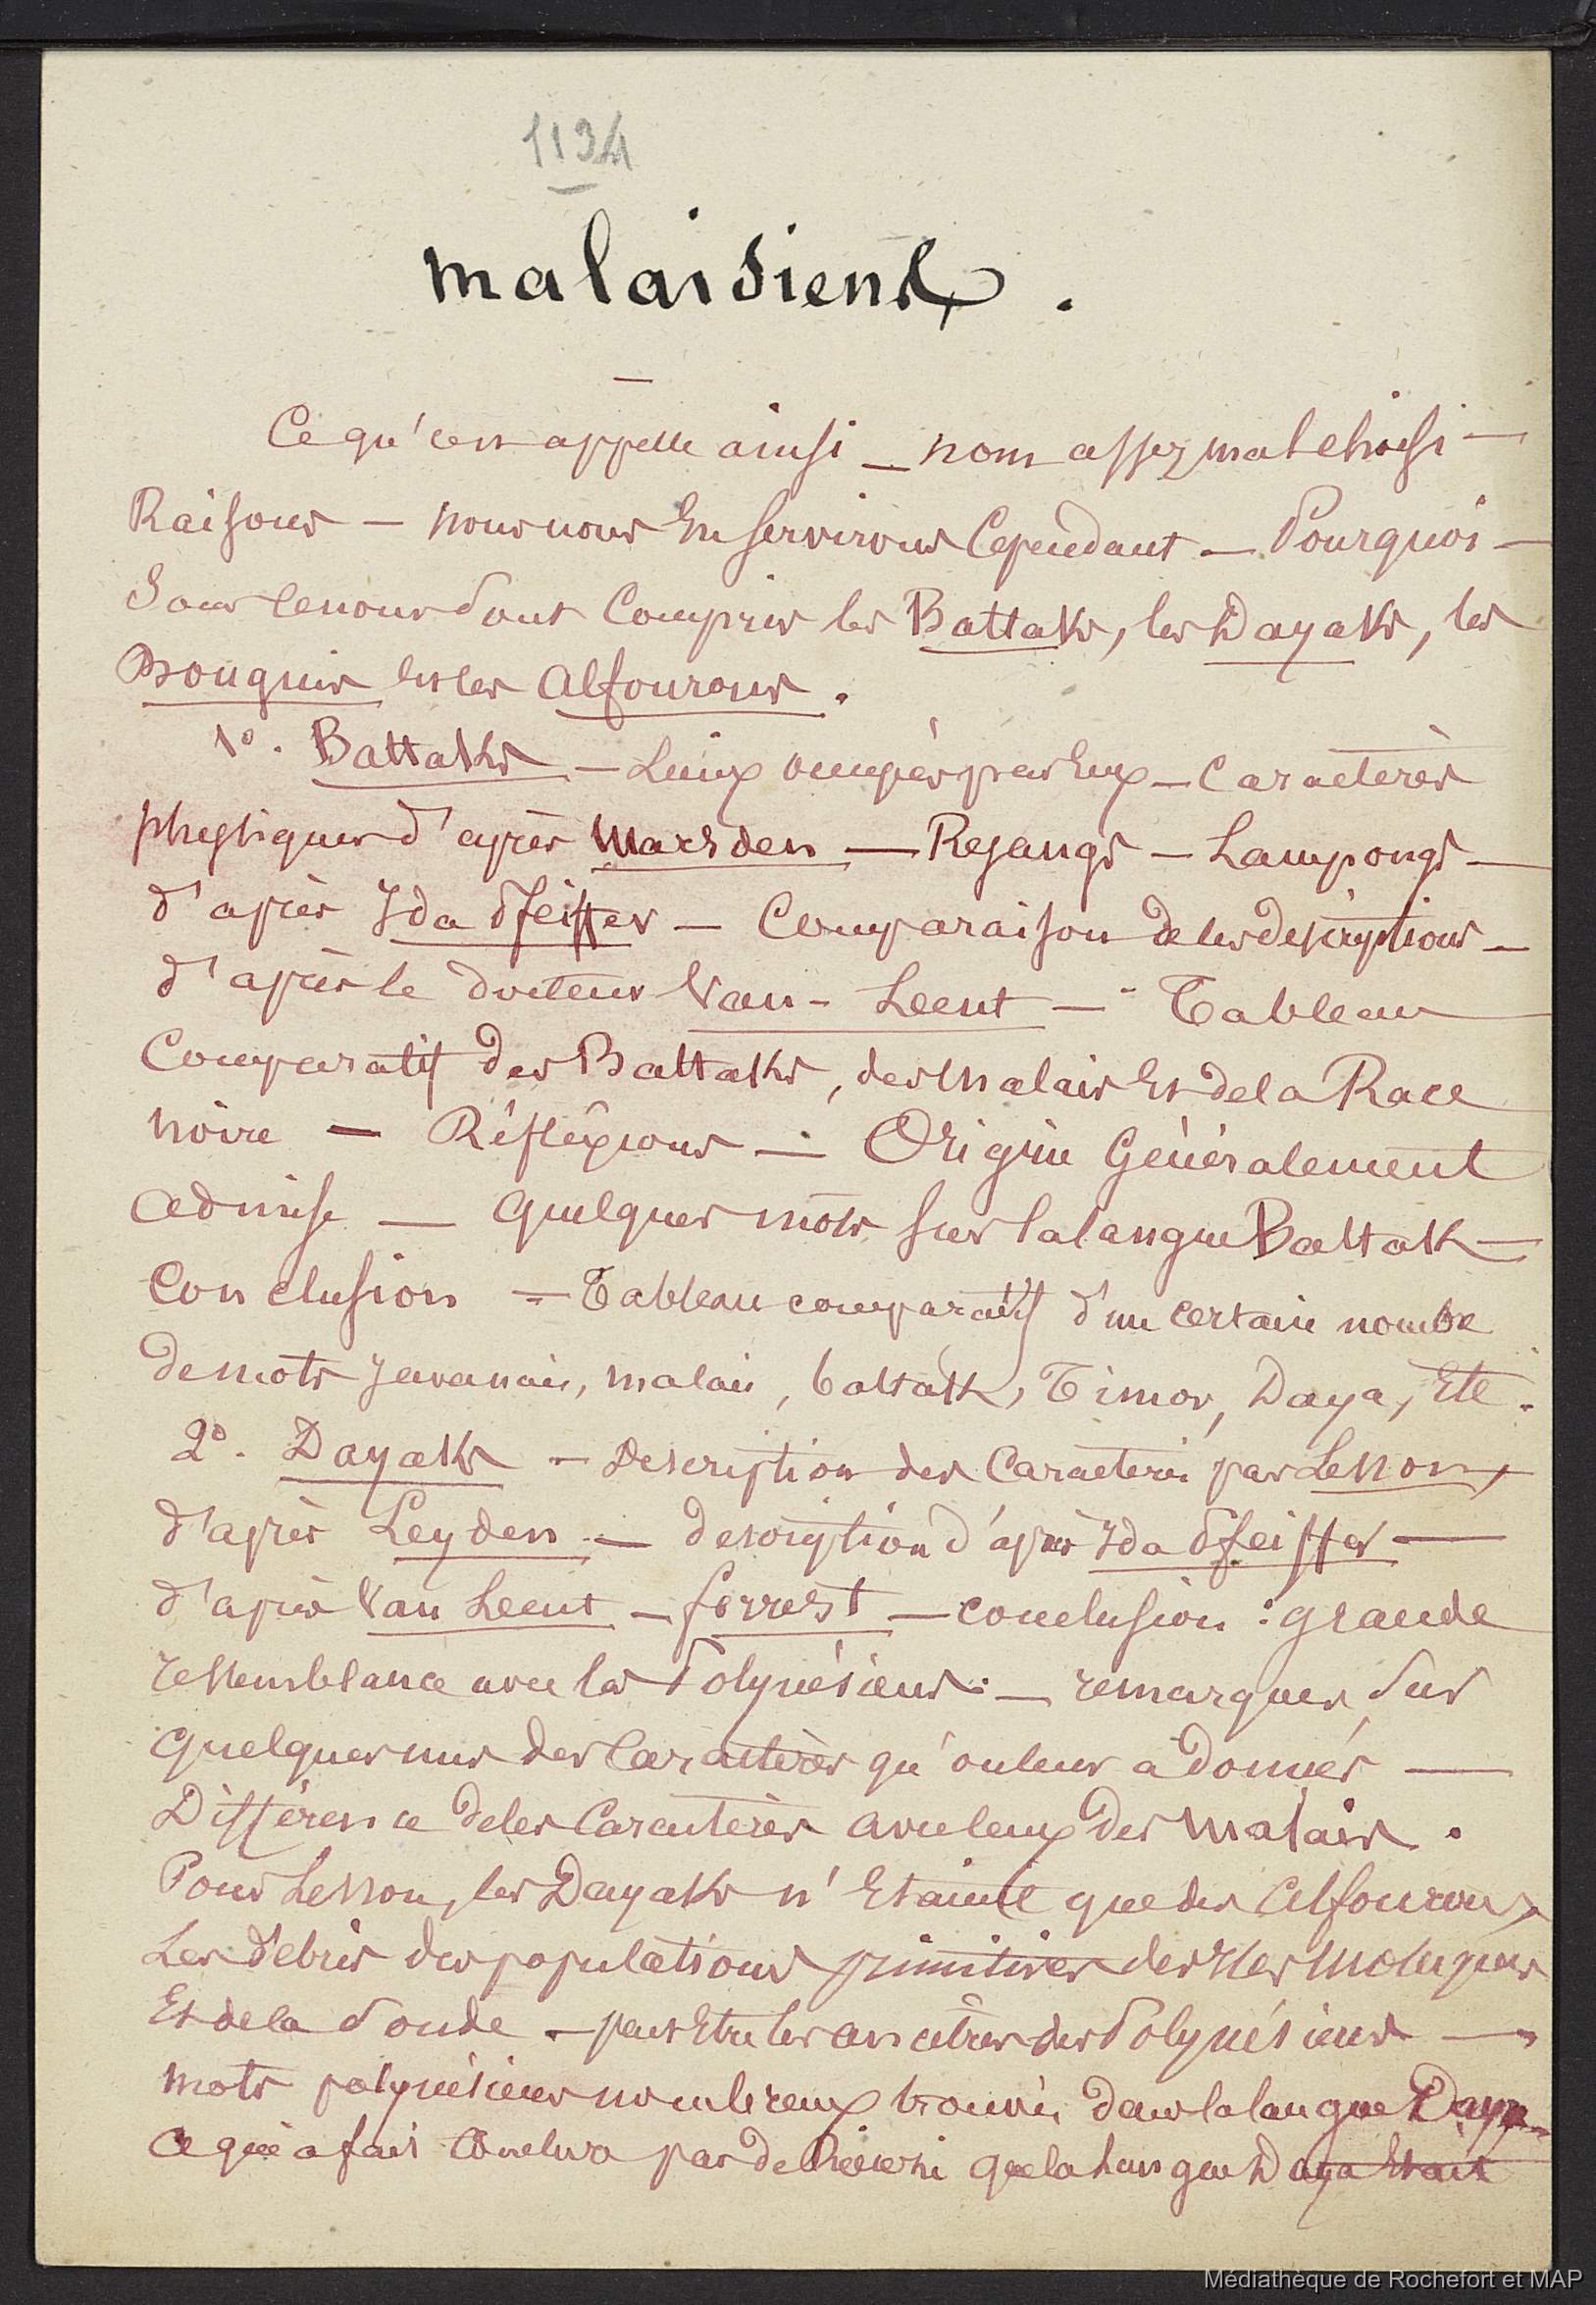 1194
malaisiens.
Ce qu'on appelle ainsi — nom assez mal choisi —
Raisons — nous nous en servirons Cependant — Pourquoi —
Sous ce nom sont Compris les Battaks, les Dayaks, les
Bouguis et les Alfourous.
1º. Battaks — Lieux occupés par Eux — Caractères
physiques d'après Marsden — Rejangs — Lampongs —
d'après Ida Pfeiffer — Comparaison de ces descriptions —
d'après le docteur Van-Leent — Tableau
Comparatif des Battaks, des Malais Et de la Race
noire — Réflexions — Origine Généralement
admise — quelques mots sur la langue Battak —
Conclusion — Tableau comparatif d'un certain nombre
de mots Javanais, malais, battak, Timor, Daya, Etc.
2º. Dayaks — Description des Caractères par Lesson,
d'après Leyden — description d'après Ida Pfeiffer —
d'après Van Leent — forrest — conclusion : grande
ressemblance avec les Polynésiens : — remarques sur
quelques uns des Caractères qu'on leur a donnés —
Différence de ces Caractères avec ceux des Malais.
Pour Lesson, les Dayaks n'Etaient que des Alfourous,
Les débris des populations primitives des Iles Moluques
Et de la Sonde — peut Etre les ancêtres des Polynésiens —
mots polynésiens nombreux trouvés dans la langue Daya —
Ce qui a fait conclure par de Rienzi que la Langue Daya Etait
Médiathèque de Rochefort et MAP